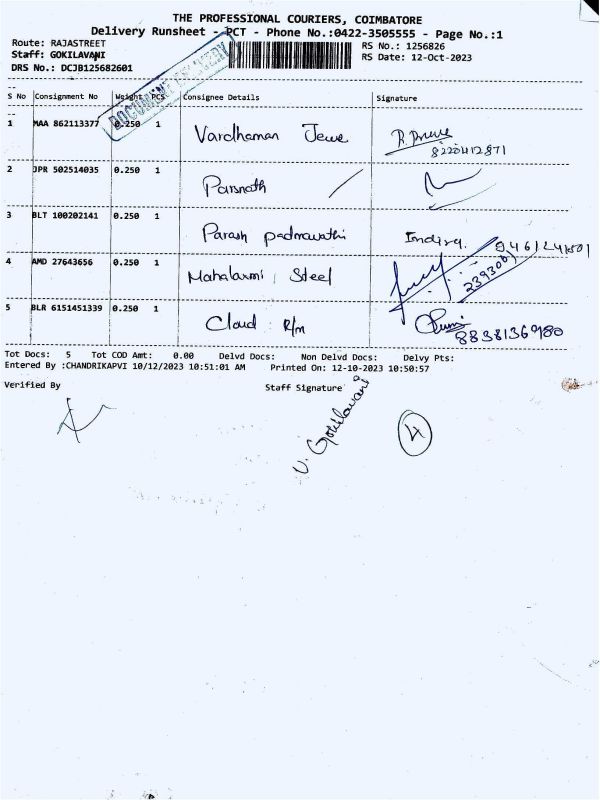 THE PROFESSIONAL COURIERS, COIMBATORE
Delivery Runsheet - PCT - Phone No.:0422-3505555 - Page No.:1
Route: RAJASTREET
RS No.: 1256826
Staff: GOKILAVANI
RS Date: 12-Oct-2023
DRS No.: DCJB125682601
S No Consignment No Weight PCS Consignee Details Signature
1 MAA 862113377 0.250 1 Vardhaman Jewe
2 JPR 502514035 0.250 1 Parsnath
3 BLT 100202141 0.250 1 Parash padmavathi Indira.
4 AMD 27643656 0.250 1 Mahalaxmi Steel
5 BLR 6151451339 0.250 1 Cloud R/m 8838136980
Tot Docs: 5 Tot COD Amt: 0.00 Delvd Docs: Non Delvd Docs: Delvy Pts:
Entered By :CHANDRIKAPVI 10/12/2023 10:51:01 AM Printed On: 12-10-2023 10:50:57
Verified By Staff Signature
V. Gokilavani
4